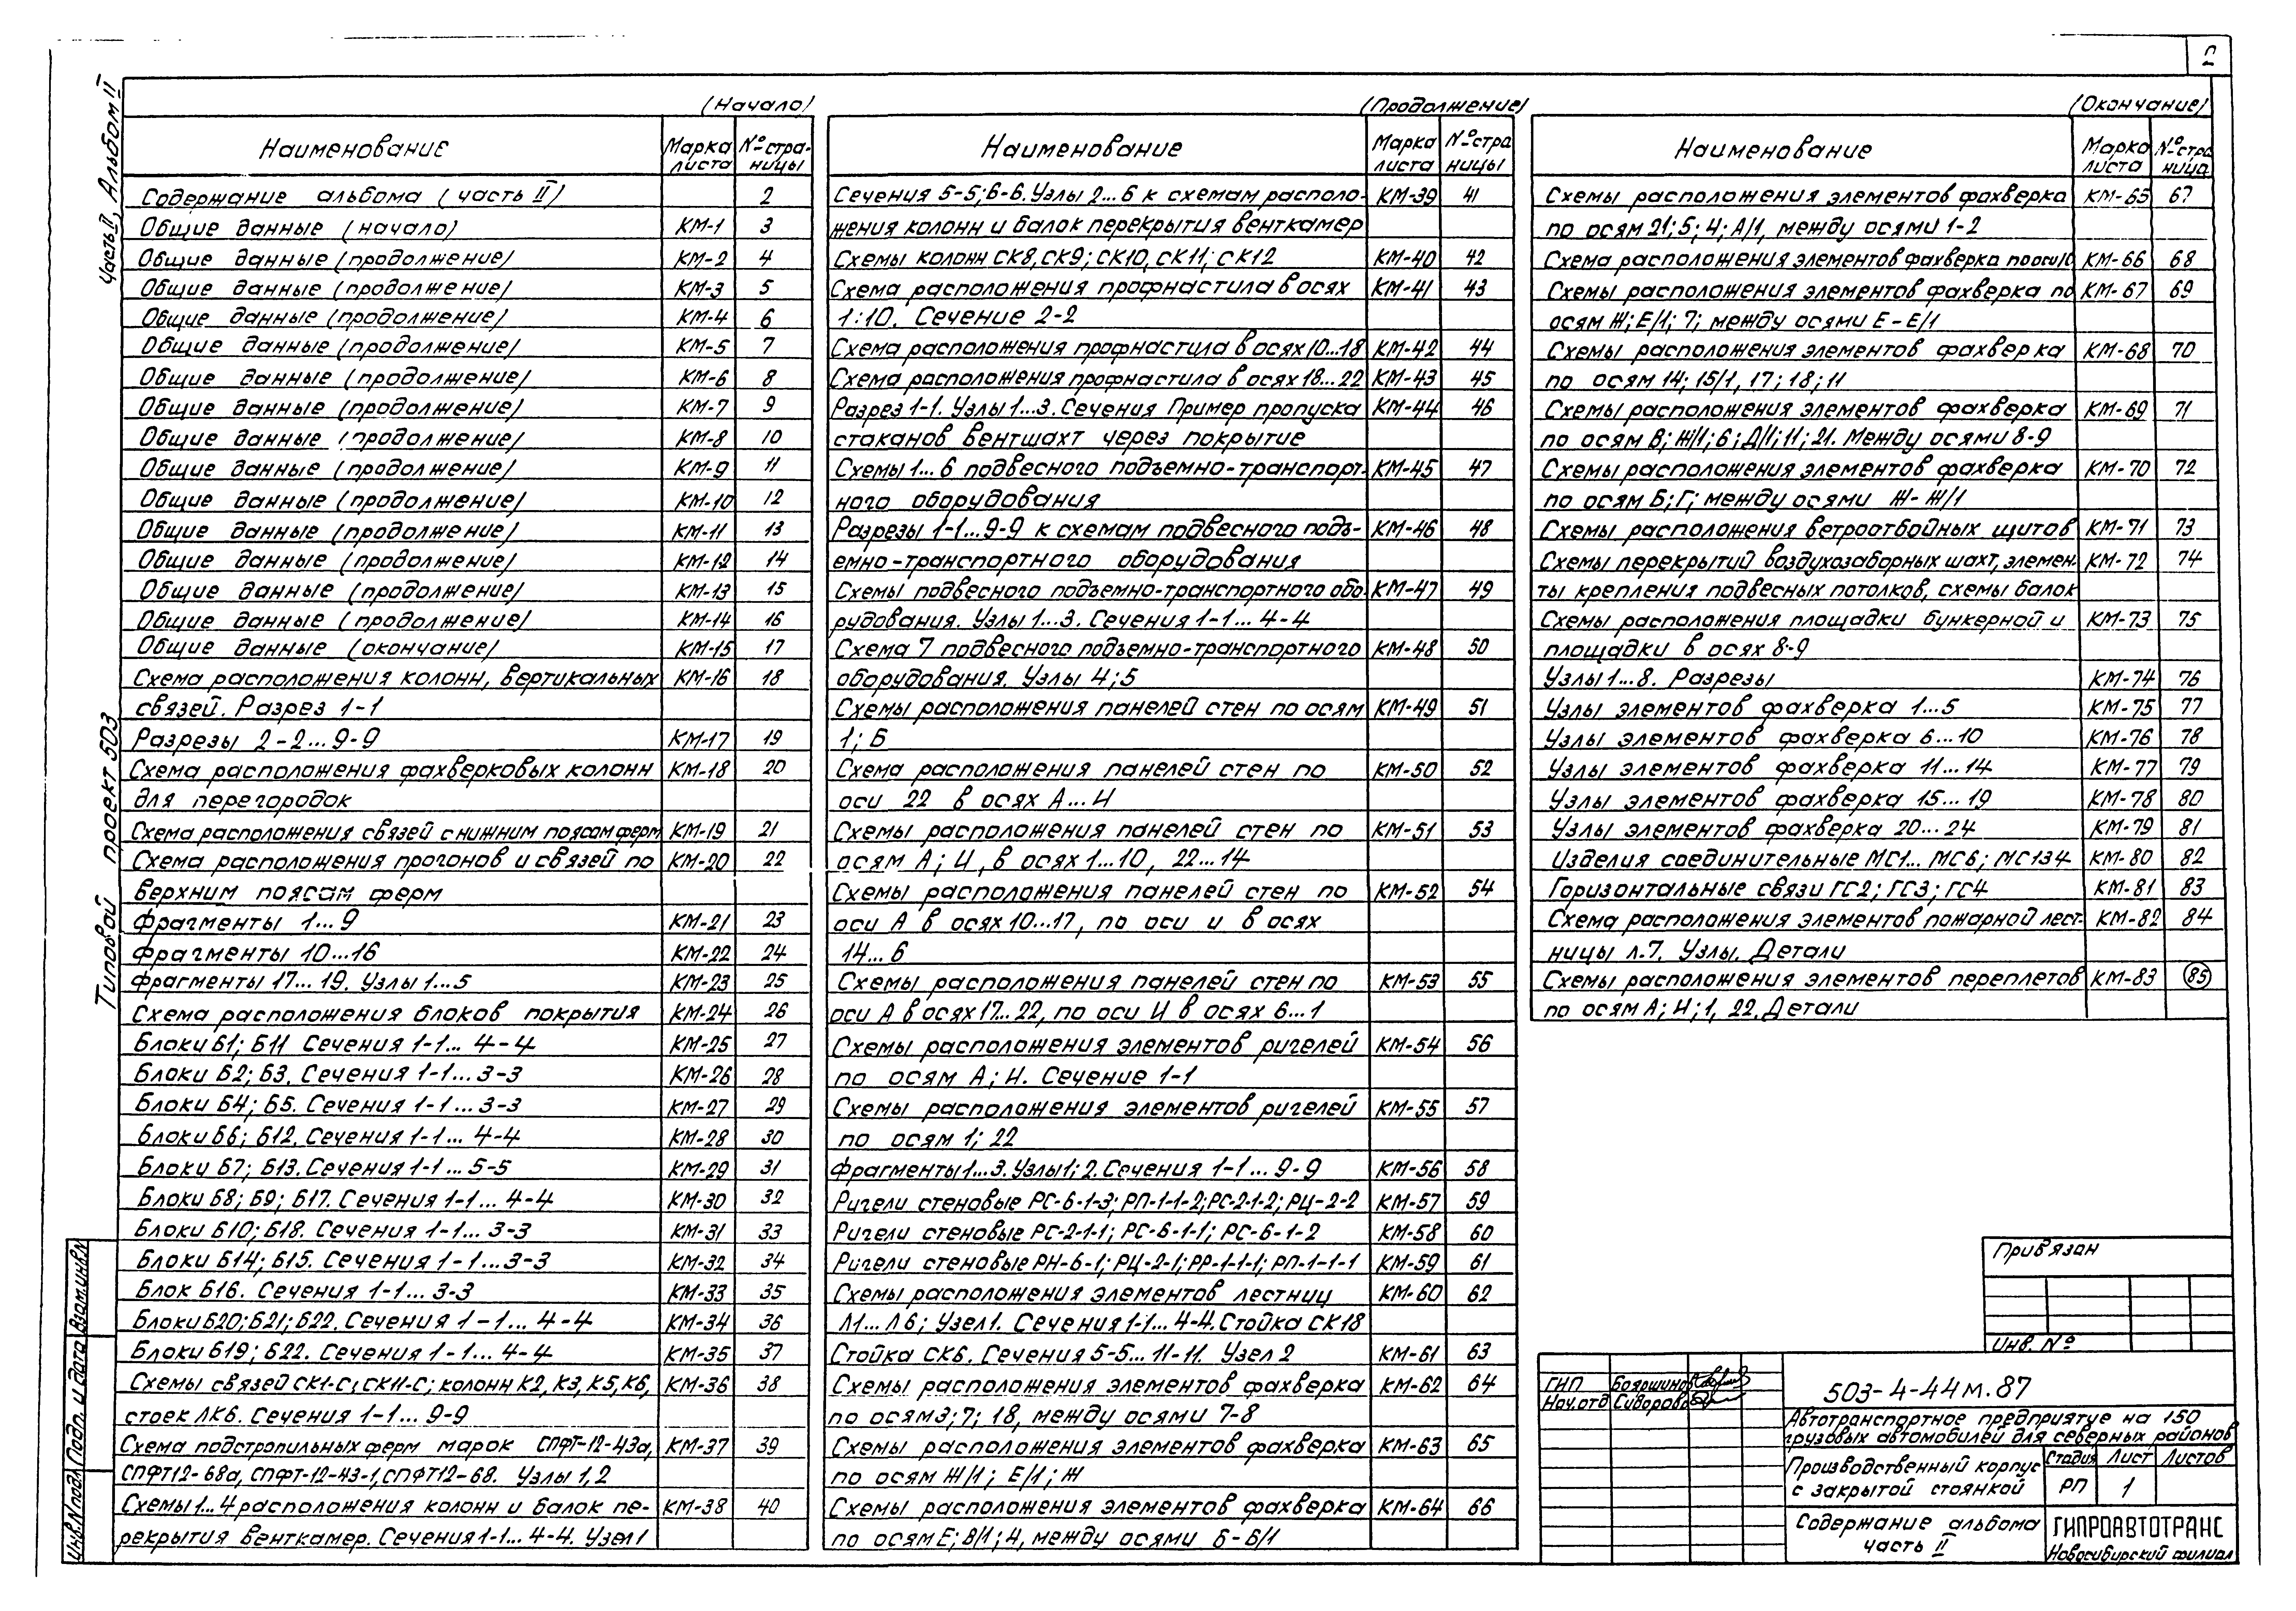 2
Часть II, Альбом II
Типовой проект 503
(Начало)
Наименование Марка листа №стра-ницы
Содержание альбома (часть II) 2
Общие данные (начало) КМ-1 3
Общие данные (продолжение) КМ-2 4
Общие данные (продолжение) КМ-3 5
Общие данные (продолжение) КМ-4 6
Общие данные (продолжение) КМ-5 7
Общие данные (продолжение) КМ-6 8
Общие данные (продолжение) КМ-7 9
Общие данные (продолжение) КМ-8 10
Общие данные (продолжение) КМ-9 11
Общие данные (продолжение) КМ-10 12
Общие данные (продолжение) КМ-11 13
Общие данные (продолжение) КМ-12 14
Общие данные (продолжение) КМ-13 15
Общие данные (продолжение) КМ-14 16
Общие данные (окончание) КМ-15 17
Схема расположения колонн, вертикальных КМ-16 18
связей. Разрез 1-1
Разрезы 2-2...9-9 КМ-17 19
Схема расположения фахверковых колонн КМ-18 20
для перегородок
Схема расположения связей с нижним поясам ферм КМ-19 21
Схема расположения прогонов и связей по КМ-20 22
верхним поясам ферм
Фрагменты 1...9 КМ-21 23
Фрагменты 10...16 КМ-22 24
Фрагменты 17...19. Узлы 1...5 КМ-23 25
Схема расположения блоков покрытия КМ-24 26
Блоки Б1; Б11 Сечения 1-1...4-4 КМ-25 27
Блоки Б2; Б3. Сечения 1-1...3-3 КМ-26 28
Блоки Б4; Б5. Сечения 1-1...3-3 КМ-27 29
Блоки Б6; Б12. Сечения 1-1...4-4 КМ-28 30
Блоки Б7; Б13. Сечения 1-1...5-5 КМ-29 31
Блоки Б8; Б9; Б17. Сечения 1-1...4-4 КМ-30 32
Блоки Б10; Б18. Сечения 1-1...3-3 КМ-31 33
Блоки Б14; Б15. Сечения 1-1...3-3 КМ-32 34
Блок Б16. Сечения 1-1...3-3 КМ-33 35
Блоки Б20; Б21; Б22. Сечения 1-1...4-4 КМ-34 36
Блоки Б19; Б22. Сечения 1-1...4-4 КМ-35 37
Схемы связей СК1-С; СК11-С; колонн К2, К3, К5, К6, КМ-36 38
стоек ЛК6. Сечения 1-1...9-9
Схема подстропильных ферм марок СПФТ-12-43а, КМ-37 39
СПФТ12-68а, СПФТ-12-43-1, СПФТ12-68. Узлы 1,2
Схемы 1...4 расположения колонн и балок пе- КМ-38 40
рекрытия венткамер. Сечения 1-1...4-4. Узел 1
(Продолжение)
Наименование Марка листа №стра ницы
Сечения 5-5; 6-6. Узлы 2...6 к схемам располо- КМ-39 41
жения колонн и балок перекрытия венткамер
Схемы колонн СК8, СК9; СК10, СК11; СК12 КМ-40 42
Схема расположения профнастила в осях КМ-41 43
1:10. Сечение 2-2
Схема расположения профнастила в осях 10...18 КМ-42 44
Схема расположения профнастила в осях 18...22 КМ-43 45
Разрез 1-1. Узлы 1...3. Сечения Пример пропуска КМ-44 46
стаканов вентшахт через покрытие
Схемы 1...6 подвесного подъемно-транспорт- КМ-45 47
ного оборудования
Разрезы 1-1...9-9 к схемам подвесного подъ- КМ-46 48
емно-транспортного оборудования
Схемы подвесного подъемно-транспортного обо- КМ-47 49
рудования. Узлы 1...3. Сечения 1-1...4-4
Схема 7 подвесного подъемно-транспортного КМ-48 50
оборудования. Узлы 4; 5
Схемы расположения панелей стен по осям КМ-49 51
1; Б
Схема расположения панелей стен по КМ-50 52
оси 22 в осях А...И
Схемы расположения панелей стен по КМ-51 53
осям А; И, в осях 1...10, 22...14
Схемы расположения панелей стен по КМ-52 54
оси А в осях 10...17, по оси и в осях
14...6
Схемы расположения панелей стен по КМ-53 55
оси А в осях 17...22, по оси И в осях 6...1
Схемы расположения элементов ригелей КМ-54 56
по осям А; И. Сечение 1-1
Схемы расположения элементов ригелей КМ-55 57
по осям 1; 22
Фрагменты 1...3. Узлы 1; 2. Сечения 1-1...9-9 КМ-56 58
Ригели стеновые РС-6-1-3; РП-1-1-2; РС-2-1-2; РЦ-2-2 КМ-57 59
Ригели стеновые РС-2-1-1; РС-6-1-1; РС-6-1-2 КМ-58 60
Ригели стеновые РН-6-1; РЦ-2-1; РР-1-1-1; РП-1-1-1 КМ-59 61
Схемы расположения элементов лестниц КМ-60 62
Л1...Л6; Узел 1. Сечения 1-1...4-4. Стойка СК18
Стойка СК6. Сечения 5-5...11-11. Узел 2 КМ-61 63
Схемы расположения элементов фахверка КМ-62 64
по осям 3; 7; 18, между осями 7-8
Схемы расположения элементов фахверка КМ-63 65
по осям Ж/1; Е/1; Ж
Схемы расположения элементов фахверка КМ-64 66
по осям Е; В/1; 4, между осями Б-Б/1
(Окончание)
Наименование Марка листа №стра ница
Схемы расположения элементов фахверка КМ-65 67
по осям 21; 5; 4; А/1, между осями 1-2
Схема расположения элементов фахверка по оси КМ-66 68
Схемы расположения элементов фахверка по КМ-67 69
осям Ж; Е/1; 7; между осями Е-Е/1
Схемы расположения элементов фахверка КМ-68 70
по осям 14; 15/1, 17; 18; 11
Схемы расположения элементов фахверка КМ-69 71
по осям В; Ж/1; 6; Д/1; 11; 21. Между осями 8-9
Схемы расположения элементов фахверка КМ-70 72
по осям Б; Г; между осями Ж-Ж/1
Схемы расположения ветроотбойных щитов КМ-71 73
Схемы перекрытий воздухозаборных шахт, элемен- КМ-72 74
ты крепления подвесных потолков, схемы балок
Схемы расположения площадки бункерной и КМ-73 75
площадки в осях 8-9
Узлы 1...8. Разрезы КМ-74 76
Узлы элементов фахверка 1...5 КМ-75 77
Узлы элементов фахверка 6...10 КМ-76 78
Узлы элементов фахверка 11...14 КМ-77 79
Узлы элементов фахверка 15...19 КМ-78 80
Узлы элементов фахверка 20...24 КМ-79 81
Изделия соединительные МС1...МС6; МС134 КМ-80 82
Горизонтальные связи ГС2; ГС3; ГС4 КМ-81 83
Схема расположения элементов пожарной лест- КМ-82 84
ницы л.7. Узлы. Детали
Схемы расположения элементов переплетов КМ-83 85
по осям А; И; 1, 22. Детали
Привязан
Инв. №
ГИП Бояршинов
Нач.отд Сидоров
503-4-44м.87
Автотранспортное предприятие на 150
грузовых автомобилей для северных районов
Производственный корпус
с закрытой стоянкой
Стадия Лист Листов
РП 1
Содержание альбома
часть II
ГИПРОАВТОТРАНС
Новосибирский филиал
Взам.инв.N
Подп. и дата
Инв.N подл